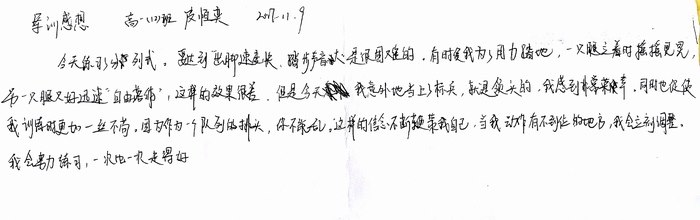 军训感想 高一(12)班 皮恒奕 2017.11.9
今天练习分列式,要达到出脚速度快、踏步声音大是很困难的,有时候我为了用力踏地,一只腿立着时摇摇晃晃,
另一只腿又好迅速"自由落体",这样的效果很差,但是今天我意外地当上了标兵,就是领头的,我感到非常荣幸,同时也促使
我训练时更加一丝不苟,因为作为一个队列的排头,你不能乱,这样的信念不断鞭策我自己,当我动作有不到位的地方,我会立刻调整,
我会努力练习,一次比一次走得好